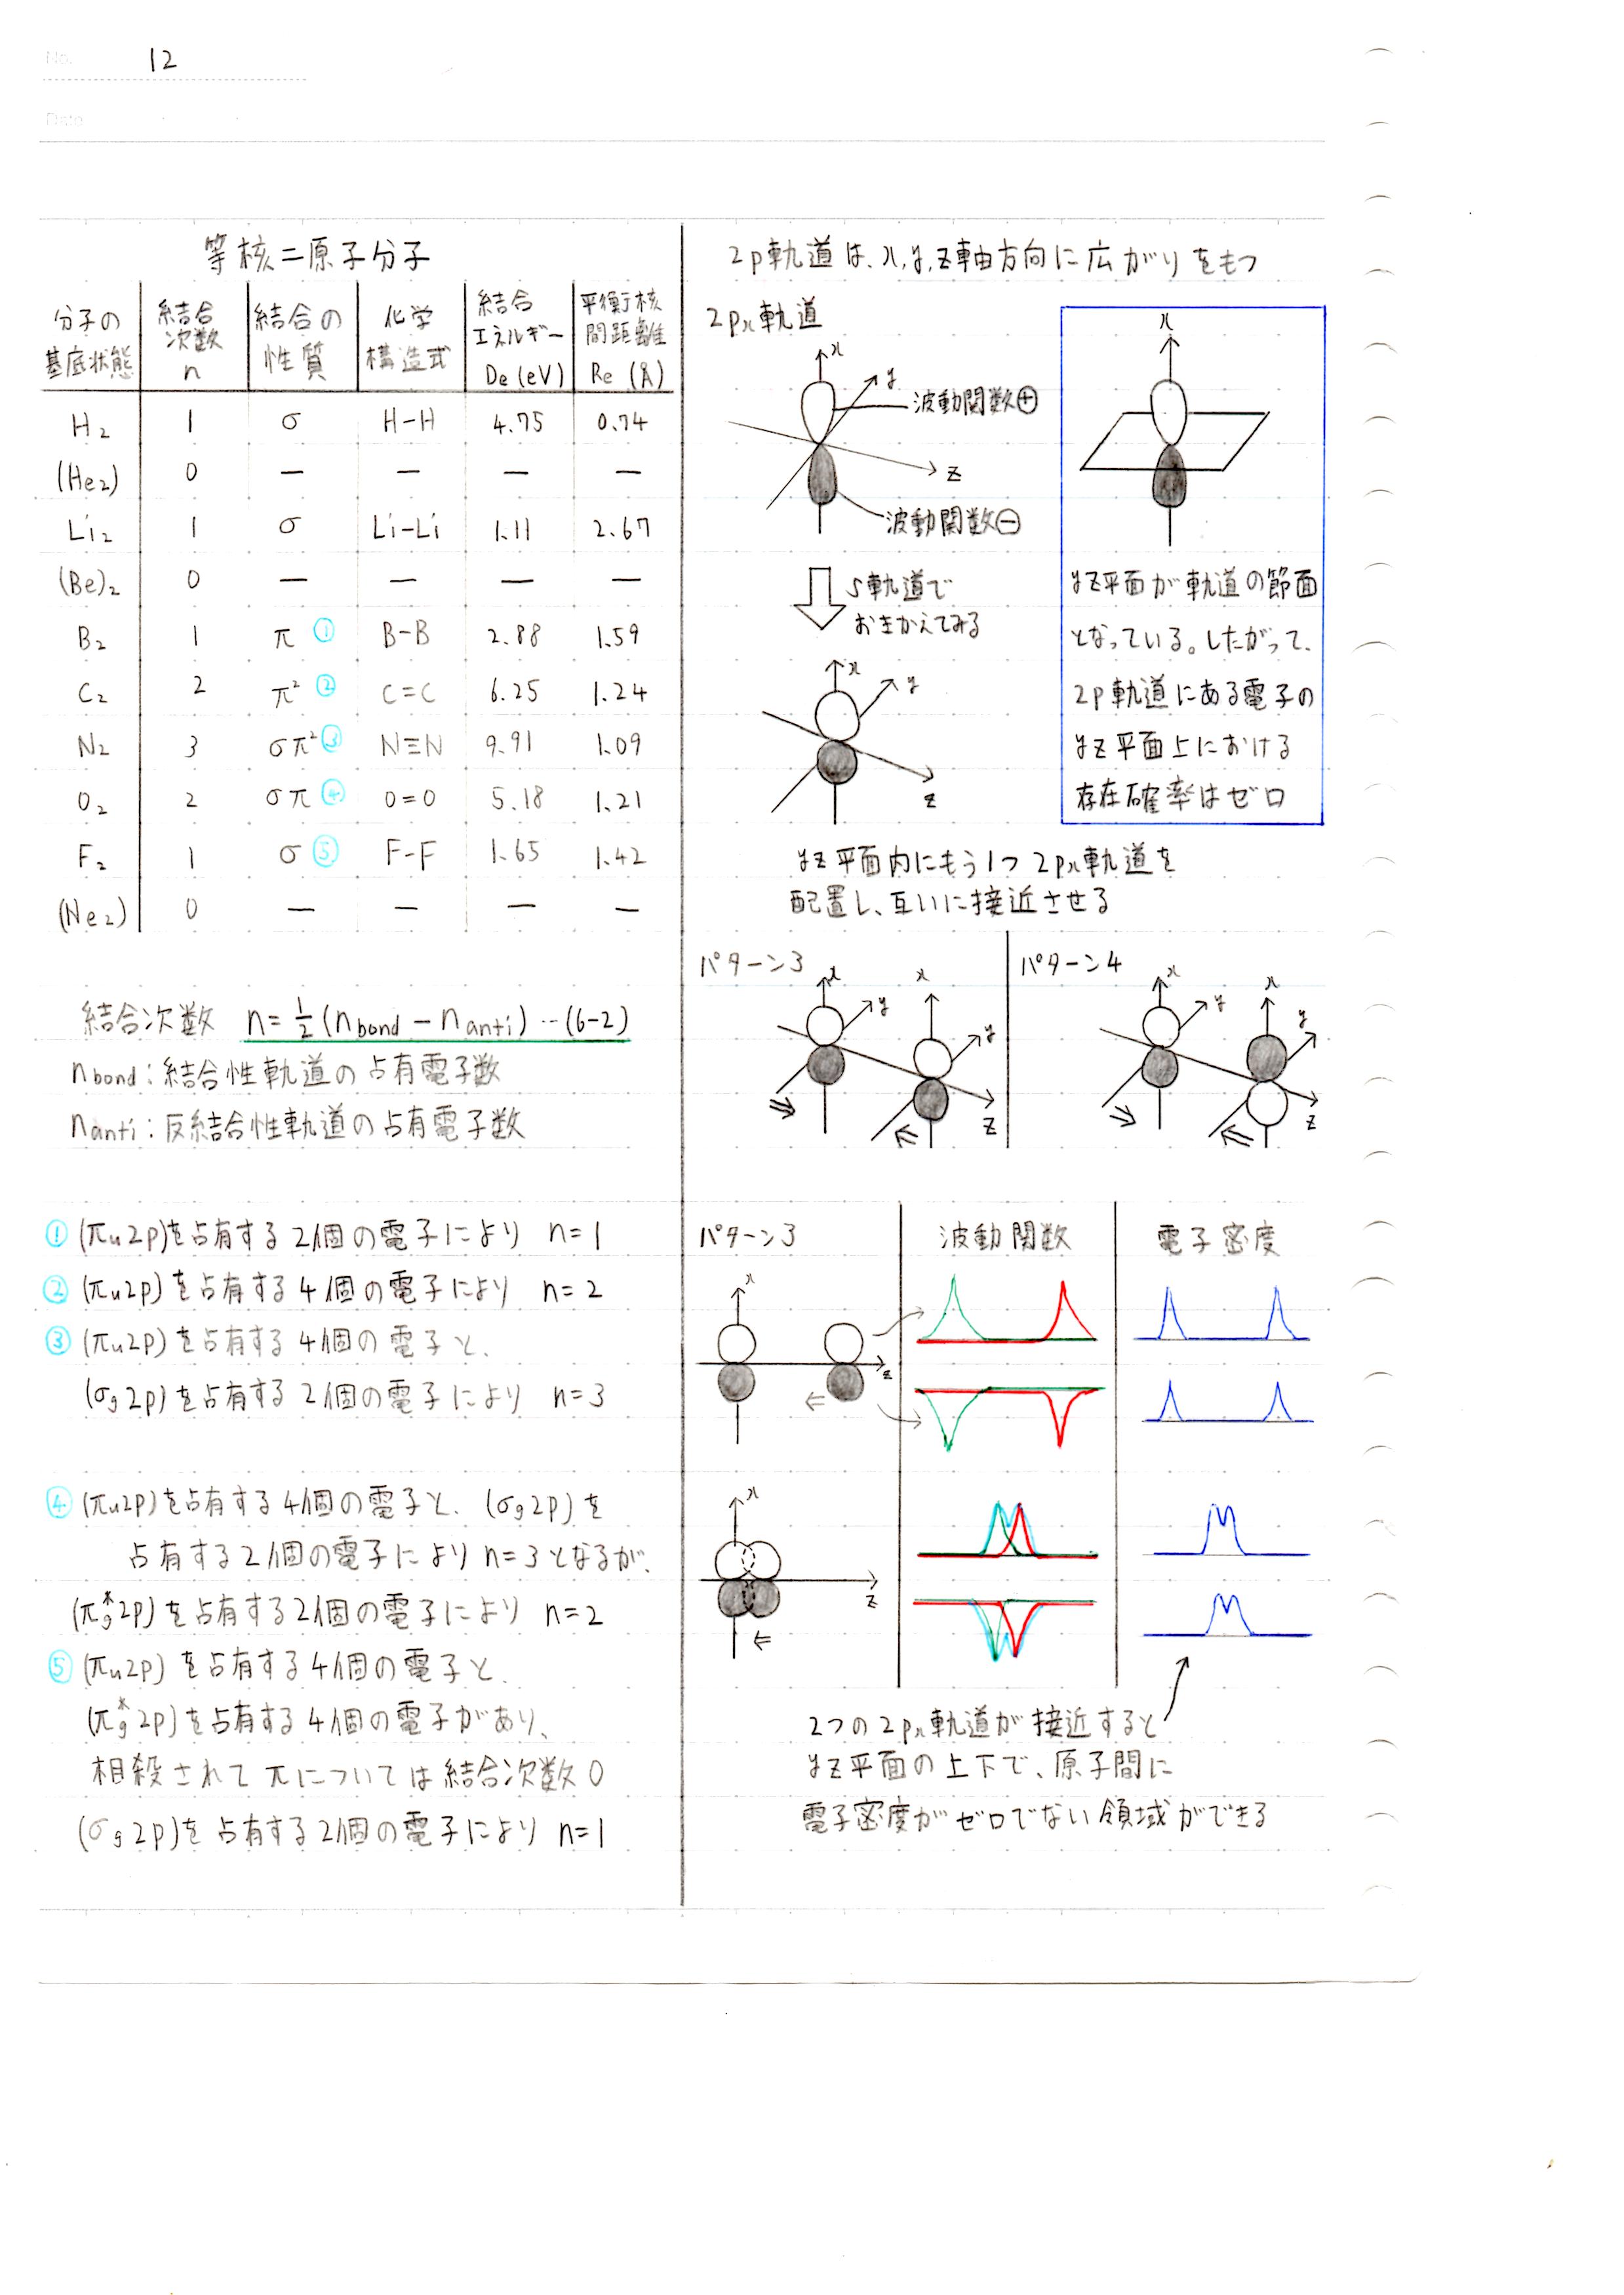 No. 12
Date
等核二原子分子
分子の基底状態 結合次数 n 結合の性質 化学構造式 結合エネルギー De (eV) 平衡核間距離 Re (Å)
H₂ 1 σ H-H 4.75 0.74
(He₂) 0 — — — —
Li₂ 1 σ Li-Li 1.11 2.67
(Be)₂ 0 — — — —
B₂ 1 π ① B-B 2.88 1.59
C₂ 2 π² ② C=C 6.25 1.24
N₂ 3 σπ² ③ N≡N 9.91 1.09
O₂ 2 σπ ④ O=O 5.18 1.21
F₂ 1 σ ⑤ F-F 1.65 1.42
(Ne₂) 0 — — — —
結合次数 n=1/2(n bond − n anti)…(6-2)
n bond:結合性軌道の占有電子数
n anti:反結合性軌道の占有電子数
① (πu2p)を占有する2個の電子により n=1
② (πu2p)を占有する4個の電子により n=2
③ (πu2p)を占有する4個の電子と、
(σg2p)を占有する2個の電子により n=3
④ (πu2p)を占有する4個の電子と、(σg2p)を
占有する2個の電子により n=3となるが、
(πg*2p)を占有する2個の電子により n=2
⑤ (πu2p)を占有する4個の電子と、
(πg*2p)を占有する4個の電子があり、
相殺されてπについては結合次数0
(σg2p)を占有する2個の電子により n=1
2p軌道は、x,y,z軸方向に広がりをもつ
2px軌道
x
y
波動関数⊕
z
波動関数⊖
s軌道で
おきかえてみる
x
y
z
x
yz平面が軌道の節面
となっている。したがって、
2p軌道にある電子の
yz平面上における
存在確率はゼロ
yz平面内にもう1つ2px軌道を
配置し、互いに接近させる
パターン3
x
y
x
y
z
パターン4
x
y
x
y
z
パターン3 波動関数 電子密度
x
z
x
z
2つの2px軌道が接近すると
yz平面の上下で、原子間に
電子密度がゼロでない領域ができる